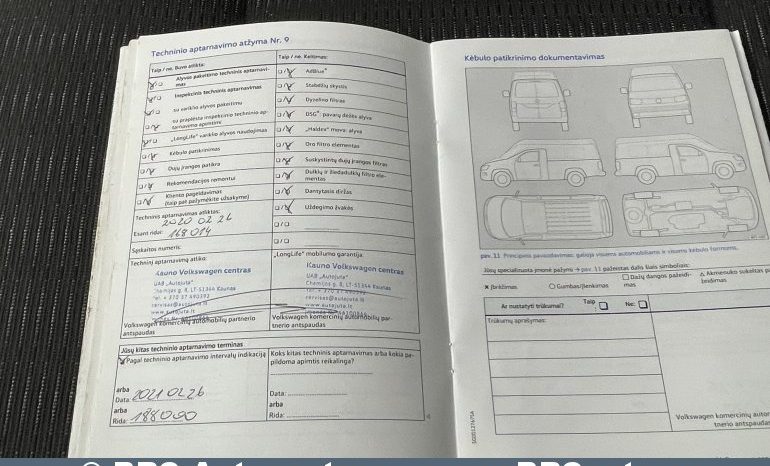 Techninio aptarnavimo atžyma Nr. 9
Taip / ne. Buvo atlikta:
Alyvos pakeitimo techninis aptarnavi-
mas
Inspekcinis techninis aptarnavimas
su variklio alyvos pakeitimu
su praplėsta inspekcinio techninio ap-
tarnavimo apimtimi
„LongLife“ variklio alyvos naudojimas
Kėbulo patikrinimas
Dujų įrangos patikra
Rekomendacijos remontui
Kliento pageidavimas
(taip pat pažymėkite užsakyme)
Techninis aptarnavimas atliktas:
2020 02 26
Esant ridai: 168 014
Sąskaitos numeris:
Techninį aptarnavimą atliko:
Kauno Volkswagen centras
UAB „Autojuta“
Chemijos g. 8, LT-51344 Kaunas
www.autojuta.lt
Volkswagen komercinių automobilių partnerio
antspaudas
Taip / ne. Keitimas:
AdBlue®
Stabdžių skystis
Dyzelino filtras
DSG® pavarų dėžės alyva
„Haldex“ mova: alyva
Oro filtro elementas
Suskystintų dujų įrangos filtras
Dulkių ir žiedadulkių filtro ele-
mentas
Dantytasis diržas
Uždegimo žvakės
„LongLife“ mobilumo garantija
Kauno Volkswagen centras
UAB „Autojuta“
Chemijos g. 8, LT-51344 Kaunas
www.autojuta.lt
Volkswagen komercinių automobilių par-
tnerio antspaudas
Jūsų kitas techninio aptarnavimo terminas
Pagal techninio aptarnavimo intervalų indikaciją
arba
Data: 2021 02 26
arba
Rida: 188000
Koks kitas techninis aptarnavimas arba kokia pa-
pildoma apimtis reikalinga?
Data:
arba
Rida:
Kėbulo patikrinimo dokumentavimas
pav. 11 Principinis pavaizdavimas: galioja visiems automobiliams ir visiems kėbulo formoms.
Jūsų specializuota įmonė pažymi → pav. 11 pažeistas dalis šiais simboliais:
× Įbrėžimas
○ Gumbas/įlenkimas
□ Dažų dangos pažeidi-
mas
△ Akmenuko sukeltas pa
žeidimas
Ar nustatyti trūkumai?
Taip
Ne:
Trūkumų aprašymas:
Volkswagen komercinių autom
tnerio antspaudas